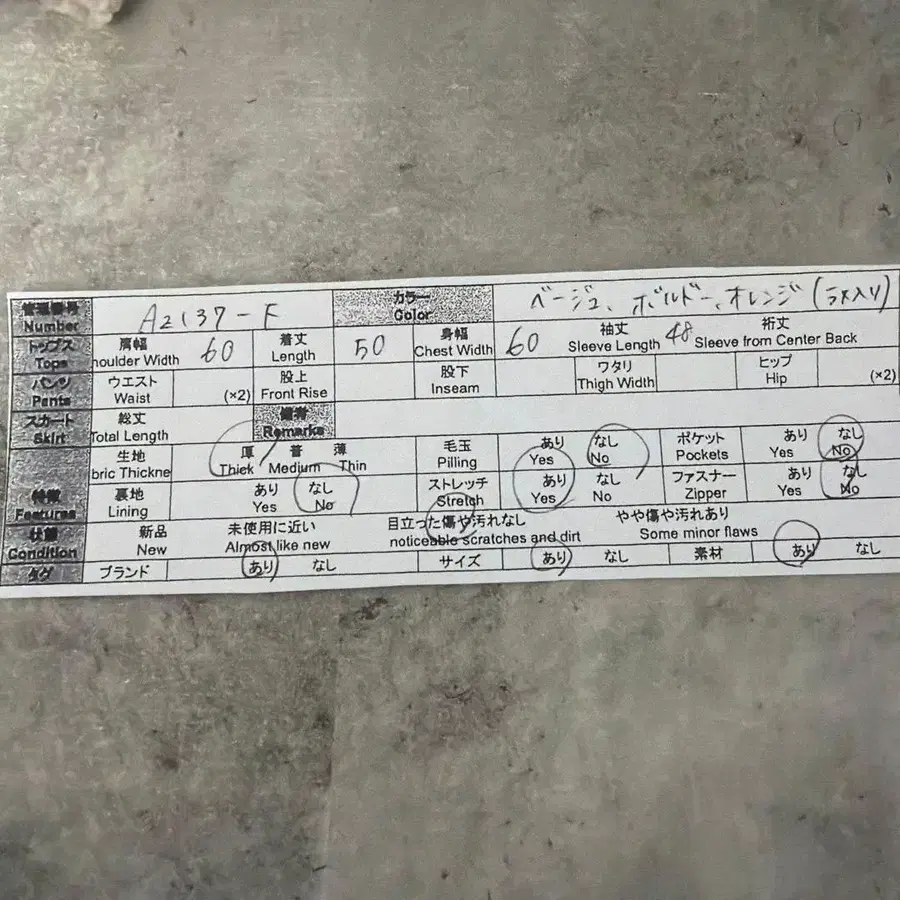 管理番号 A2137-F カラー ベージュ、ボルドー、オレンジ(ラメ入り)
Number Color
トップス 肩幅 60 着丈 50 身幅 60 袖丈 48 裄丈
Tops houlder Width Length Chest Width Sleeve Length Sleeve from Center Back
パンツ ウエスト 股上 股下 ワタリ ヒップ
Pants Waist (×2) Front Rise Inseam Thigh Width Hip (×2)
スカート 総丈 備考
Skirt Total Length Remarks
生地 厚 普 薄 毛玉 あり なし ポケット あり なし
bric Thickne Thick Medium Thin Pilling Yes No Pockets Yes No
特徴 裏地 あり なし ストレッチ あり なし ファスナー あり なし
Features Lining Yes No Stretch Yes No Zipper Yes No
状態 新品 未使用に近い 目立った傷や汚れなし やや傷や汚れあり
Condition New Almost like new noticeable scratches and dirt Some minor flaws
タグ ブランド あり なし サイズ あり なし 素材 あり なし